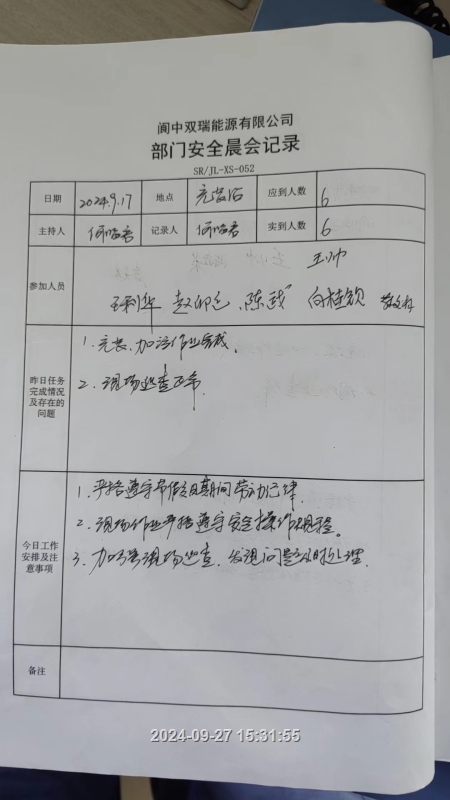 阆中双瑞能源有限公司
部门安全晨会记录
SR/JL-XS-052
日期 2024.9.17 地点 充装站 应到人数 6
主持人 记录人 实到人数 6
参加人员 王帅
王利华 向桂钦
昨日任务完成情况及存在的问题
1. 充装、加注作业完成.
2. 现场巡查正常.
今日工作安排及注意事项
1. 严格遵守节假日期间劳动纪律.
2. 现场作业严格遵守安全操作规程。
3. 加强现场巡查,发现问题及时处理.
备注
2024-09-27 15:31:55